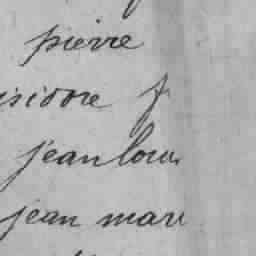 pierre
isidore f
jean loui
jean mari